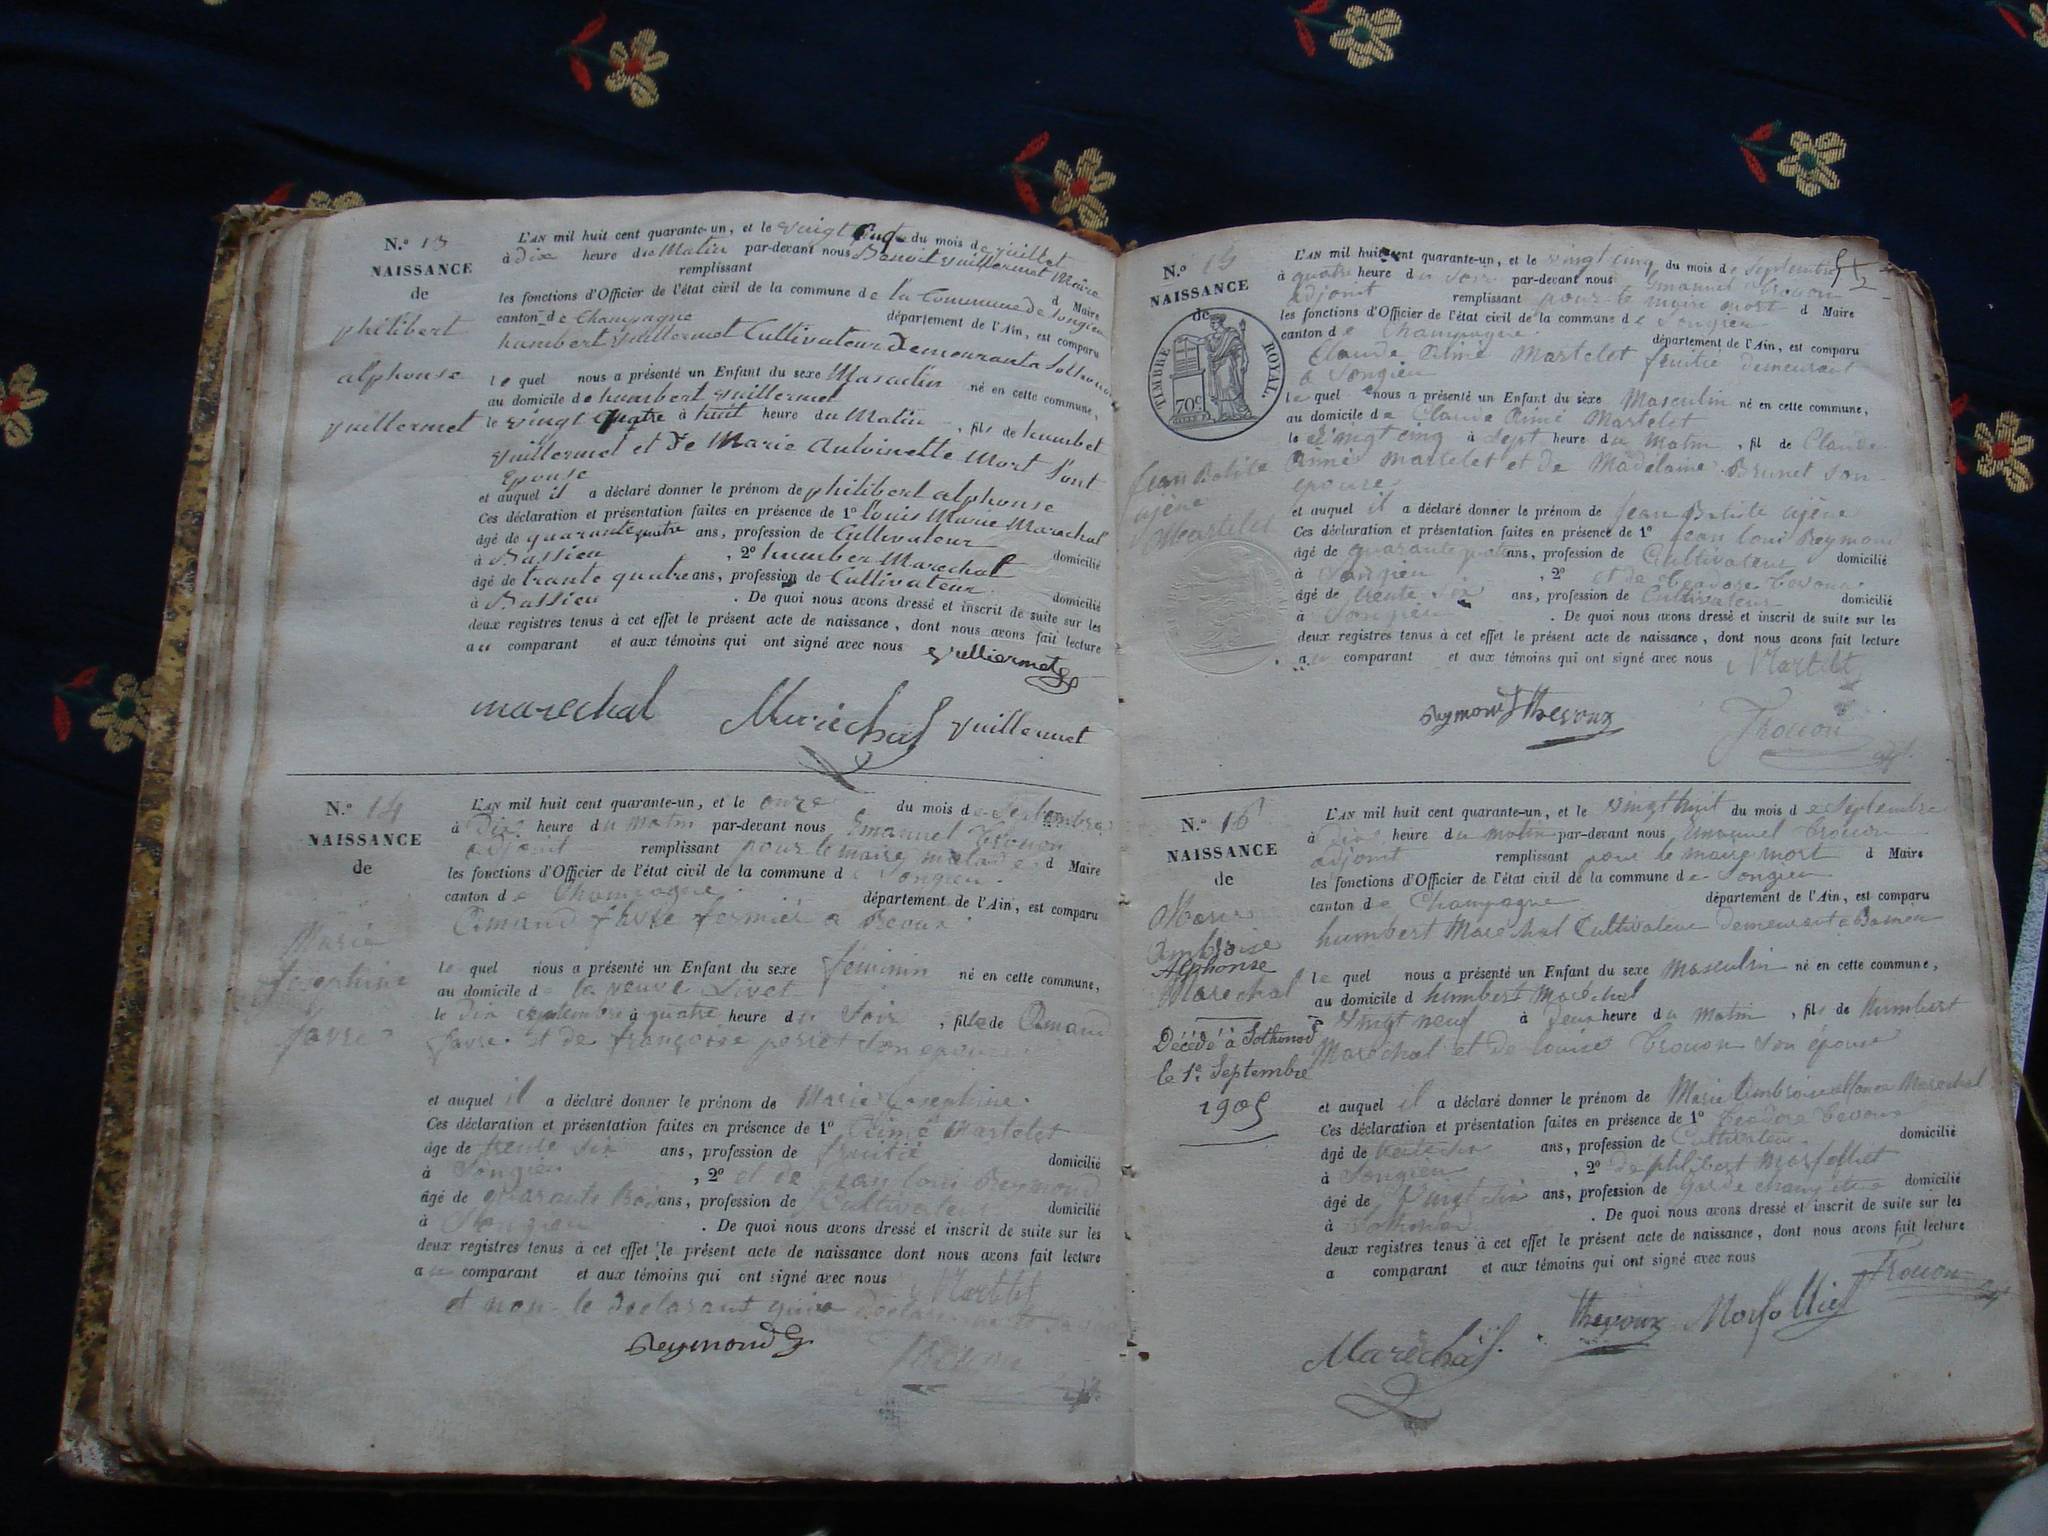 N.º 13
NAISSANCE
de
philibert
alphonse
Vuillermet
L'AN mil huit cent quarante-un, et le vingt cinq du mois de juillet
à dix heure du Matin par-devant nous Benoit Vuillermet Maire
remplissant
les fonctions d'Officier de l'état civil de la commune de la Commune de Songieu d Maire
canton de Champagne département de l'Ain, est comparu
humbert Vuillermet Cultivateur Demeurant a Sothonod
le quel nous a présenté un Enfant du sexe Masculin né en cette commune,
au domicile de humbert Vuillermet
le vingt quatre à huit heure du Matin, fils de humbet
Vuillermet et De Marie Antoinette Mort Sont
Epouse
et auquel il a déclaré donner le prénom de philibert alphonse
Ces déclaration et présentation faites en présence de 1º Louis Marie Marechal
âgé de quarante quatre ans, profession de Cultivateur domicilié
à Bassieu, 2º humber Marechal
âgé de trante quatre ans, profession de Cultivateur domicilié
à Bassieu. De quoi nous avons dressé et inscrit de suite sur les
deux registres tenus à cet effet le présent acte de naissance, dont nous avons fait lecture
au comparant et aux témoins qui ont signé avec nous Vuilliermet
marechal Maréchal Vuillermet
N.º 14
NAISSANCE
de
Marie
Josephine
favre
L'AN mil huit cent quarante-un, et le onze du mois de Septembre
à Dix heure du matin par-devant nous Emanuel Trouon
adjoint remplissant pour le maire malade d Maire
les fonctions d'Officier de l'état civil de la commune de Songieu
canton de Champagne département de l'Ain, est comparu
Amand favre fermier a
le quel nous a présenté un Enfant du sexe feminin né en cette commune,
au domicile de la veuve Livet
le dix septembre à quatre heure du Soir, fille de Amand
favre et de françoise perret son epouse
et auquel il a déclaré donner le prénom de Marie Josephine
Ces déclaration et présentation faites en présence de 1º Aimé Martelet
âgé de trente six ans, profession de fruitié domicilié
à Songieu, 2º et de jean loui Reymond
âgé de quarante ans, profession de Cultivateur domicilié
à Songieu. De quoi nous avons dressé et inscrit de suite sur les
deux registres tenus à cet effet le présent acte de naissance dont nous avons fait lecture
au comparant et aux témoins qui ont signé avec nous Martelet
et non le Declarant qui a
Reymond Trouon
N.º 15
NAISSANCE
de
TIMBRE ROYAL
70 c
Jean Batiste
ujène
Martelet
L'AN mil huit cent quarante-un, et le vingt cinq du mois de Septembre
à quatre heure du soir par-devant nous Emanuel Trouon
adjoint remplissant pour le maire mort d Maire
les fonctions d'Officier de l'état civil de la commune de Songieu
canton de Champagne département de l'Ain, est comparu
Claude Aimé Martelet fruitié demeurant
a Songieu
le quel nous a présenté un Enfant du sèxe Masculin né en cette commune,
au domicile de Claude Aimé Martelet
le vingt cinq à Sept heure du matin, fil de Claude
Aimé Martelet et de Madelaine Brunet son
epouse
et auquel il a déclaré donner le prénom de Jean Batiste ujène
Ces déclaration et présentation faites en présence de 1º jean loui Reymond
âgé de quarante quatre ans, profession de Cultivateur domicilié
à Songieu, 2º et de
âgé de trente six ans, profession de Cultivateur domicilié
à Songieu. De quoi nous avons dressé et inscrit de suite sur les
deux registres tenus à cet effet le présent acte de naissance, dont nous avons fait lecture
au comparant et aux témoins qui ont signé avec nous Martelet
Reymond Thevoux Trouon adj.
N.º 16
NAISSANCE
de
Marie
Ambroise
Alphonse
Marechal
Décédé à Sothonod
le 1er Septembre
1905
L'AN mil huit cent quarante-un, et le vingt huit du mois de Septembre
à dix heure du matin par-devant nous Emanuel Trouon
adjoint remplissant pour le maire mort d Maire
les fonctions d'Officier de l'état civil de la commune de Songieu
canton de Champagne département de l'Ain, est comparu
humbert Maréchal Cultivateur demeurant a Bassieu
le quel nous a présenté un Enfant du sexe masculin né en cette commune,
au domicile d humbert Maréchal
vingt neuf à Deux heure du matin, fils de humbert
Maréchal et de louise Trouon son épouse
et auquel il a déclaré donner le prénom de Marie Ambroise Marechal
Ces déclaration et présentation faites en présence de 1º
âgé de trente six ans, profession de Cultivateur domicilié
à Songieu, 2º de philibert
âgé de vingt six ans, profession de garde champetre domicilié
à Sothonod. De quoi nous avons dressé et inscrit de suite sur les
deux registres tenus à cet effet le présent acte de naissance, dont nous avons fait lecture
a comparant et aux témoins qui ont signé avec nous Trouon adj
Maréchal Thevoux